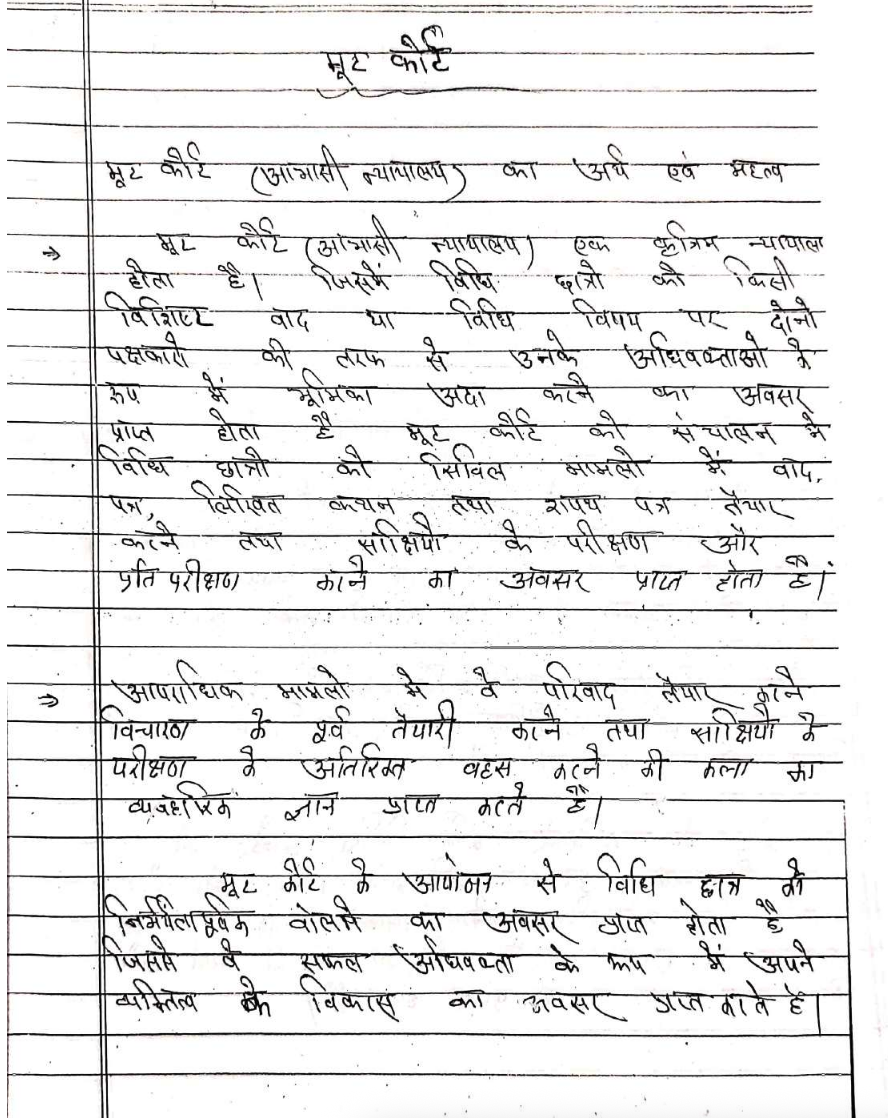 मूट कोर्ट
मूट कोर्ट (आभासी न्यायालय) का अर्थ एवं महत्व
⇒ मूट कोर्ट (आभासी न्यायालय) एक कृत्रिम न्यायाल
होता है। जिसमें विधि छात्रो को किसी
विशिष्ट वाद या विधि विषय पर दोनो
पक्षकारो की तरफ से उनके अधिवक्ताओ के
रूप में भूमिका अदा करने का अवसर
प्राप्त होता है मूट कोर्ट को संचालन मे
विधि छात्रो को सिविल मामलो में वाद,
पत्र, लिखित कथन तथा शपथ पत्र तैयार
करने तथा साक्षियो के परीक्षण और
प्रति परीक्षण करने का अवसर प्राप्त होता है।
⇒ आपराधिक मामलो मे वे परिवाद तैयार करने
विचारण के पूर्व तैयारी करने तथा साक्षियो के
परीक्षण के अतिरिक्त वहस करने की कला का
व्यवहारिक ज्ञान प्राप्त करते है।
मूट कोर्ट के आयोजन से विधि छात्र को
वोलने का अवसर प्राप्त होता है
जिससे वे सफल अधिवक्ता के रूप में अपने
व्यक्तित्व के विकास का अवसर प्राप्त करते है।